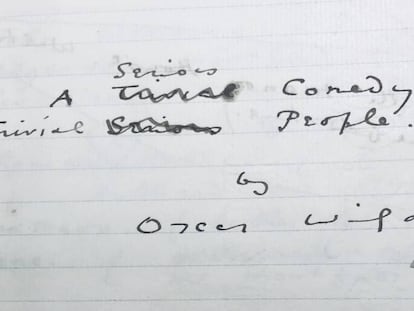 Serious
A Trivial Comedy
Trivial Serious People.
by
Oscar Wild